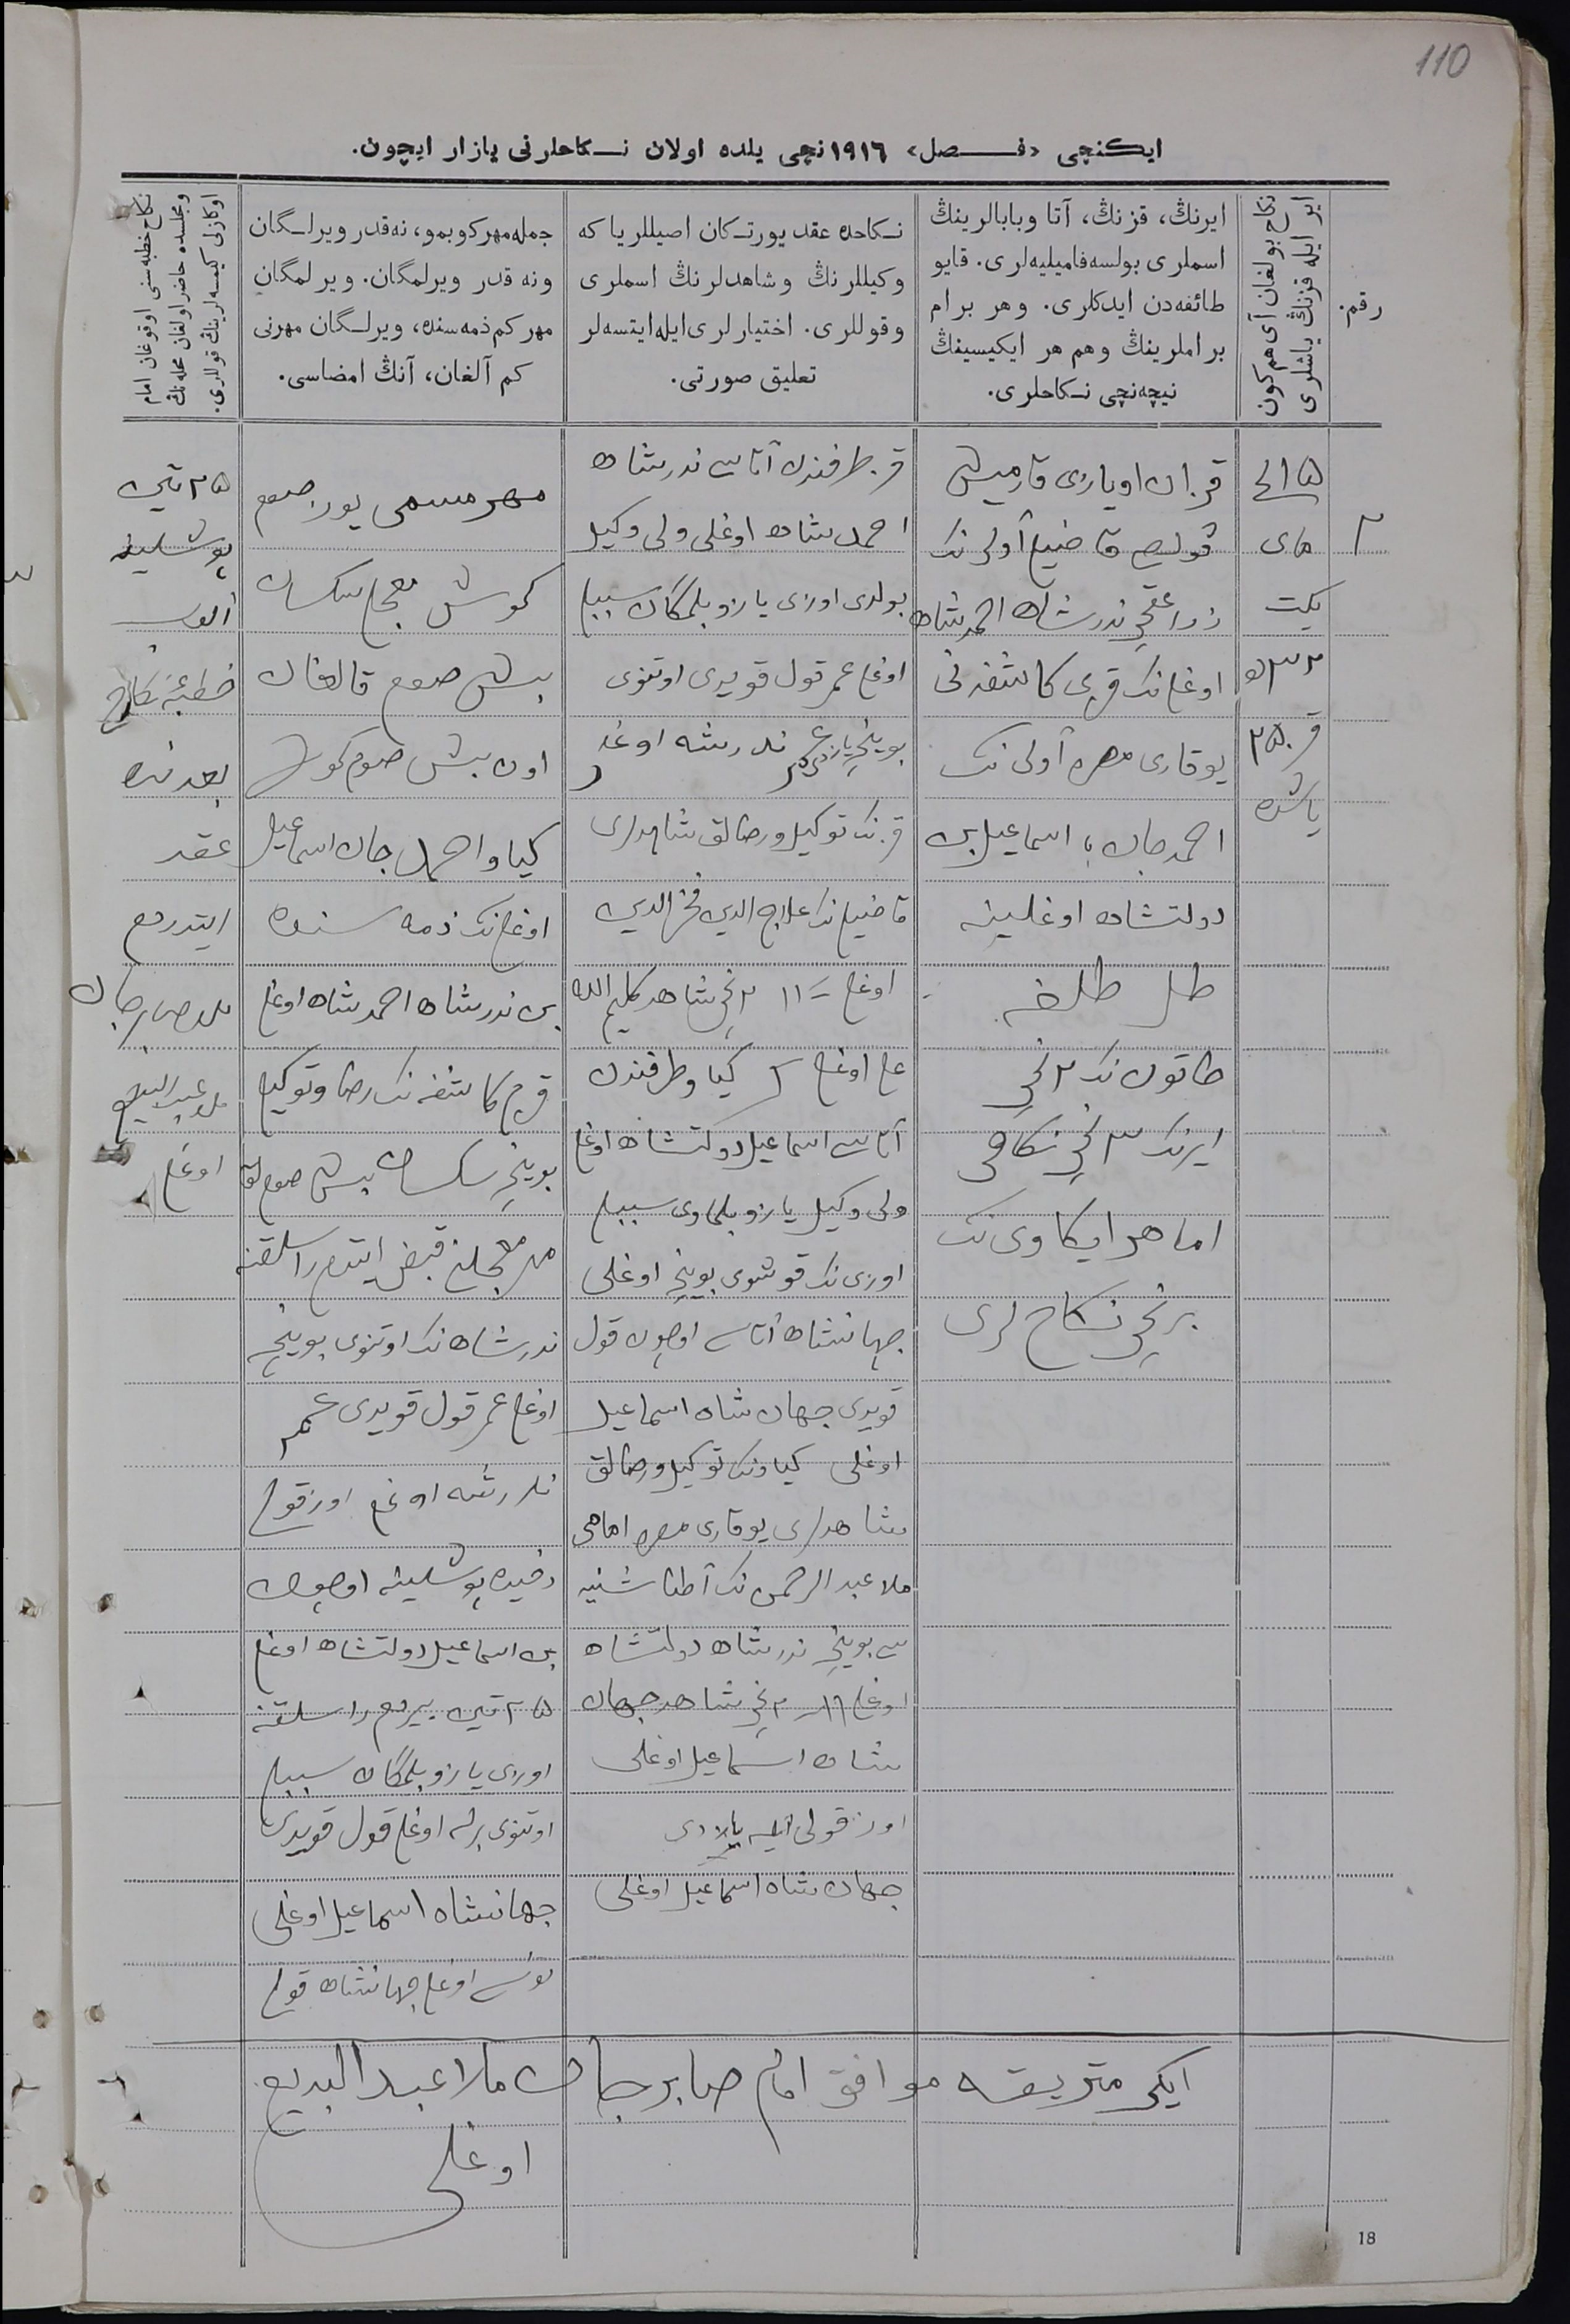 110
ایکنچی «فـــصل» ١٩١٦نچی یلده اولان نـکاحلرنی یازار ایچون.
رقم.
نکاح بولغان آی هم کون
ایر ایله قزنڭ یاشلری
ایرنڭ، قزنڭ، آتا وبابالرینڭ
اسملری بولسه فامیلیه‌لری. قایو
طائفه‌دن ایدکلری. وهر برام
براملرینڭ وهم هر ایکیسینڭ
نیچه‌نچی نـکاحلری.
نـکاحده عقد یورتـکان اصیللریا که
وکیللرنڭ وشاهدلرنڭ اسملری
وقوللری. اختیارلری ایله ایتسه‌لر
تعلیق صورتی.
جمله مهر کوبمو، نه‌قدر ویرلـگان
ونه قدر ویرلمگان. ویرلمگان
مهر کم ذمه‌سنده، ویرلـگان مهرنی
کم آلغان، آنڭ امضاسی.
نکاح خطبه‌سنی اوقوغان امام
ومجلسده حاضر اولغان محله‌نڭ
اوکازنی کیمسه‌لرینڭ قوللری.
٢
١٥ نچی
مای
یکت
٣٢
قز ٢٥
یاشده
قزان اویازی قارمیش
نڭ
ندرشاه احمدشاه
اوغلی نڭ قزی کاشفه نی
یوقاری مصره آولی نڭ
احمدجان بن اسماعیل بن
دولتشاه اوغلینه
طل طلفه
خاتون نڭ ٢ نچی
ایرنڭ ٣ نچی نکاحی
اما هر ایکاوی نڭ
برنچی نکاح لری
قز طرفندن آتاسی ندرشاه
احمدشاه اوغلی ولی وکیل
بولدی اوزی یازو بلمگان سببلی
اوغلی عمر قول قویدی اوتنوی
بوینچه یازدی عمر ندرشه اوغلی
قزنڭ توکیل ورضالق شاهدلری
علاج الدین فخرالدین
اوغلی ١١ ٢ نچی شاهد کلیم الله
اوغلی کیاو طرفندن
آتاسی اسماعیل دولتشاه اوغلی
ولی وکیل یازو بلماوی سببلی
اوزی نڭ قوشوی بوینچه اوغلی
جهانشاه آتاسی اوچون قول
قویدی جهان شاه اسماعیل
اوغلی کیاونڭ توکیل ورضالق
شاهدلری یوقاری مصره امامی
ملا عبدالرحمن نڭ
بوینچه ندرشاه دولتشاه
اوغلی ١١ ٢ نچی شاهد جهان
شاه اسماعیل اوغلی
اوز قولی ایله یازدی
جهان شاه اسماعیل اوغلی
مهر مسمی یوز صوم
کموش معجل سکسان
بیش صوم قالغان
اون بیش صوم کموش
کیاو احمد جان اسماعیل
اوغلی نڭ ذمه سنده
بن ندرشاه احمدشاه اوغلی
قزم کاشفه نڭ رضا وتوکیلی
بوینچه سکسان بیش صوملق
مهر معجلنی قبض ایتدم راسلقنه
ندرشاه نڭ اوتنوی بوینچه
اوغلی عمر قول قویدی عمر
ندرشه اوغلی اوز قولی
پوشلینه اوچون
بن اسماعیل دولتشاه اوغلی
٢٥ تین بیردم راسلقنه
اوزی یازو بلمگان سببلی
اوتنوی برله اوغلی قول قویدی
جهانشاه اسماعیل اوغلی
اوغلی جهانشاه قولی
٢٥ تین
پوشلینه
آلوب
خطبۀ نکاح
بعدنده
عقد
ایتدردم
ملا صابرجان
ملا عبدالبدیع
اوغلی
ایکی متریقه موافق امام صابرجان ملا عبدالبدیع
اوغلی
18